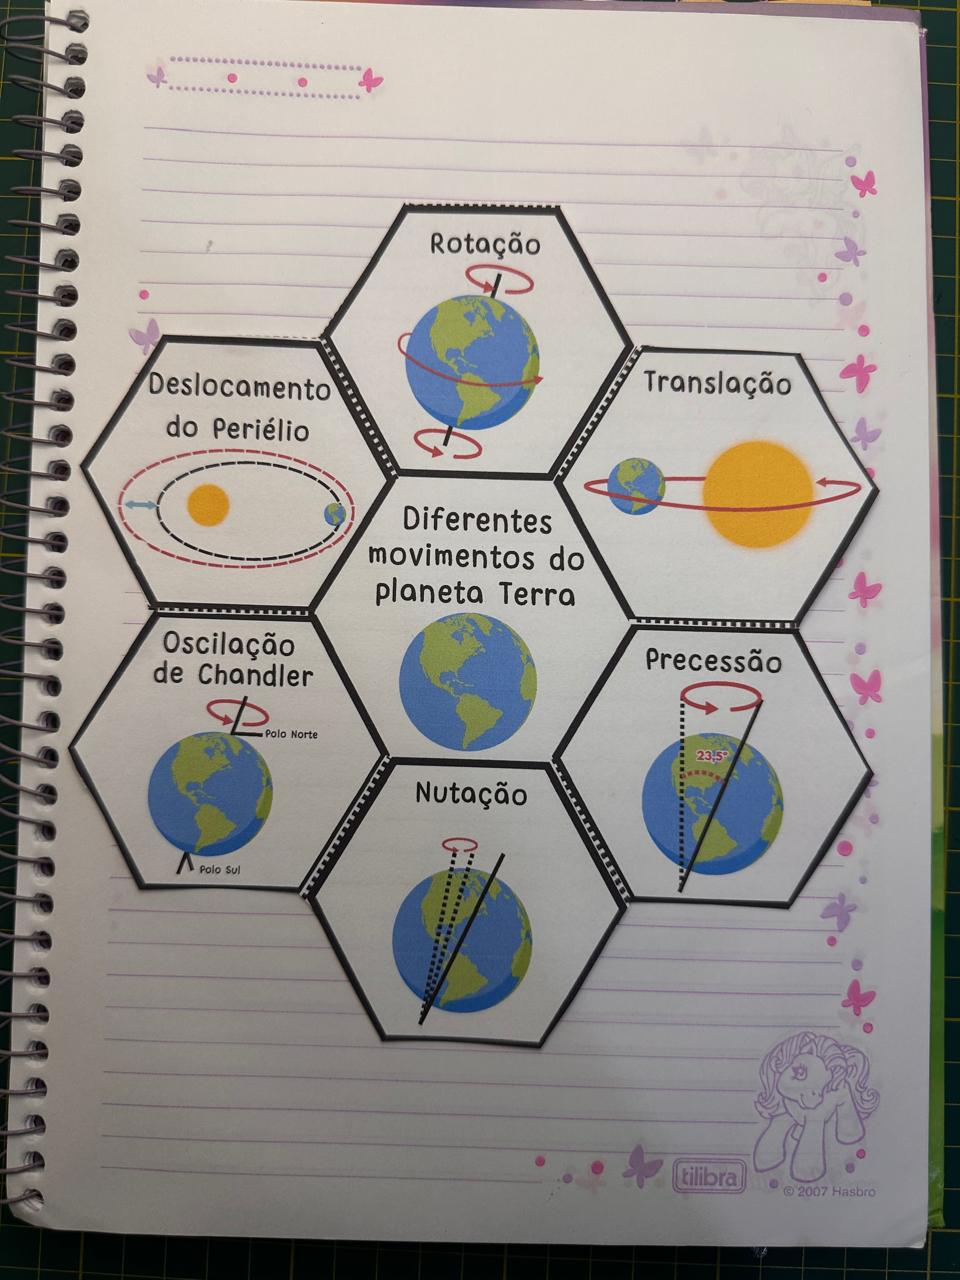 Rotação
Deslocamento
do Periélio
Translação
Diferentes
movimentos do
planeta Terra
Oscilação
de Chandler
Polo Norte
Polo Sul
Precessão
23,5°
Nutação
tilibra
© 2007 Hasbro